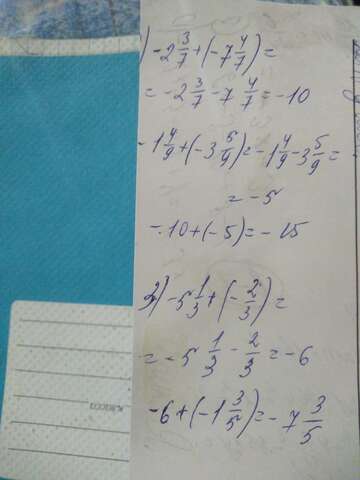 ) -2 3/7 + (-7 4/7) =
= -2 3/7 - 7 4/7 = -10
-1 4/9 + (-3 5/9) = -1 4/9 - 3 5/9 =
= -5
-10 + (-5) = -15
3) -5 1/3 + (-2/3) =
= -5 1/3 - 2/3 = -6
-6 + (-1 3/5) = -7 3/5